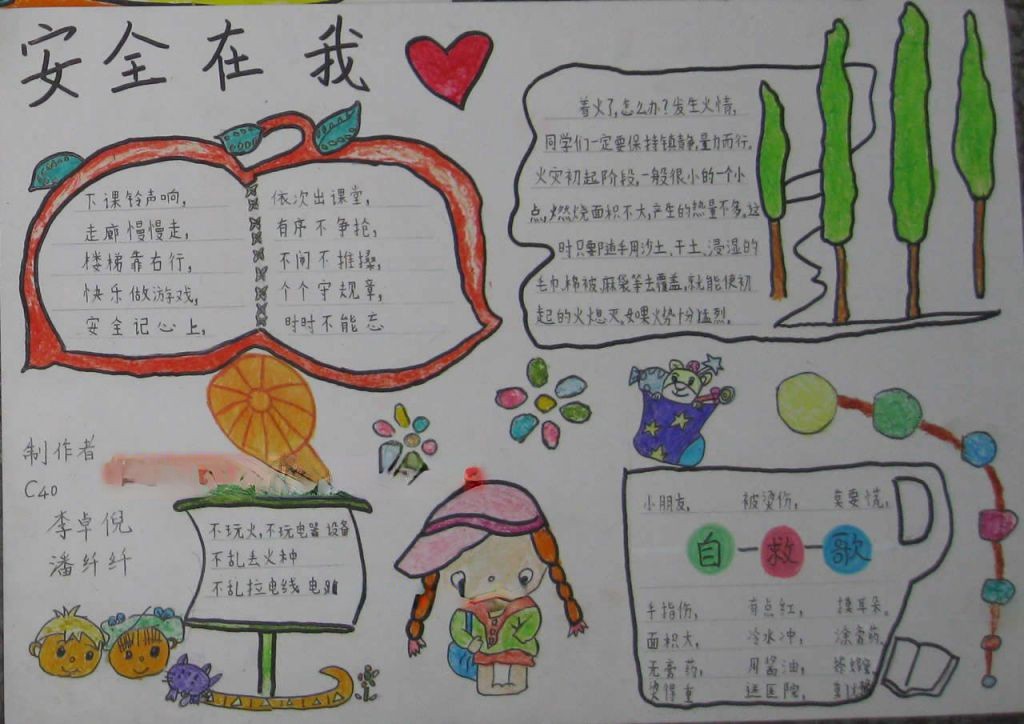 安全在我
下课铃声响，
走廊慢慢走，
楼梯靠右行，
快乐做游戏，
安全记心上，
依次出课堂，
有序不争抢，
不间不推搡，
个个守规章，
时时不能忘
着火了，怎么办？发生火情，
同学们一定要保持镇静，量力而行。
火灾初起阶段，一般很小的一个小
点，燃烧面积不大，产生的热量不多。这
时只要随手用沙土、干土、浸湿的
毛巾、棉被、麻袋等去覆盖，就能使初
起的火熄灭。如果火势十分猛烈，
制作者
C40
李卓倪
潘纤纤
不玩火，不玩电器设备
不乱丢火种
不乱拉电线
小朋友， 被烫伤， 莫要慌，
自-救-歌
手指伤， 有点红， 摸耳朵。
面积大， 冷水冲， 涂膏药，
无膏药， 用酱油，
烫得重 送医院，